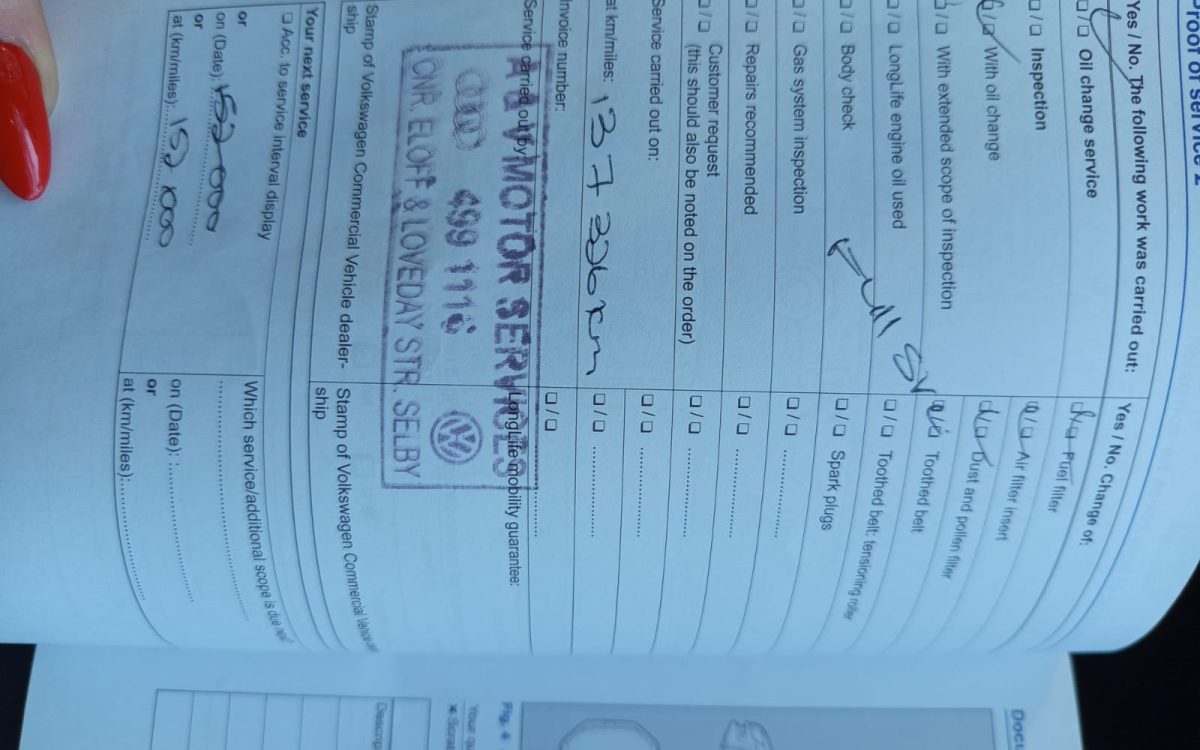 Proof of service 2
Yes / No. The following work was carried out:
□/□ Oil change service
□/□ Inspection
□/□ With oil change
□/□ With extended scope of inspection
□/□ LongLife engine oil used
□/□ Body check
□/□ Gas system inspection
□/□ Repairs recommended
□/□ Customer request
(this should also be noted on the order)
Full
Yes / No. Change of:
□/□ Fuel filter
□/□ Air filter insert
□/□ Dust and pollen filter
□/□ Toothed belt
□/□ Toothed belt: tensioning roller
□/□ Spark plugs
□/□ ..............
□/□ ..............
□/□ ..............
□/□ ..............
□/□ ..............
□/□ ..............
Service carried out on:
at km/miles: 137 326 km
Invoice number:
Service carried out by:
LongLife mobility guarantee:
MOTOR SERVICES
499 1116
CNR. ELOFF & LOVEDAY STR. SELBY
Stamp of Volkswagen Commercial Vehicle dealer-
ship
Stamp of Volkswagen Commercial Vehicle
ship
Your next service
□ Acc. to service interval display
or
on (Date): 152 000
or
at (km/miles): 152 000
Which service/additional scope is due next
on (Date): :
or
at (km/miles):
Fig. 4